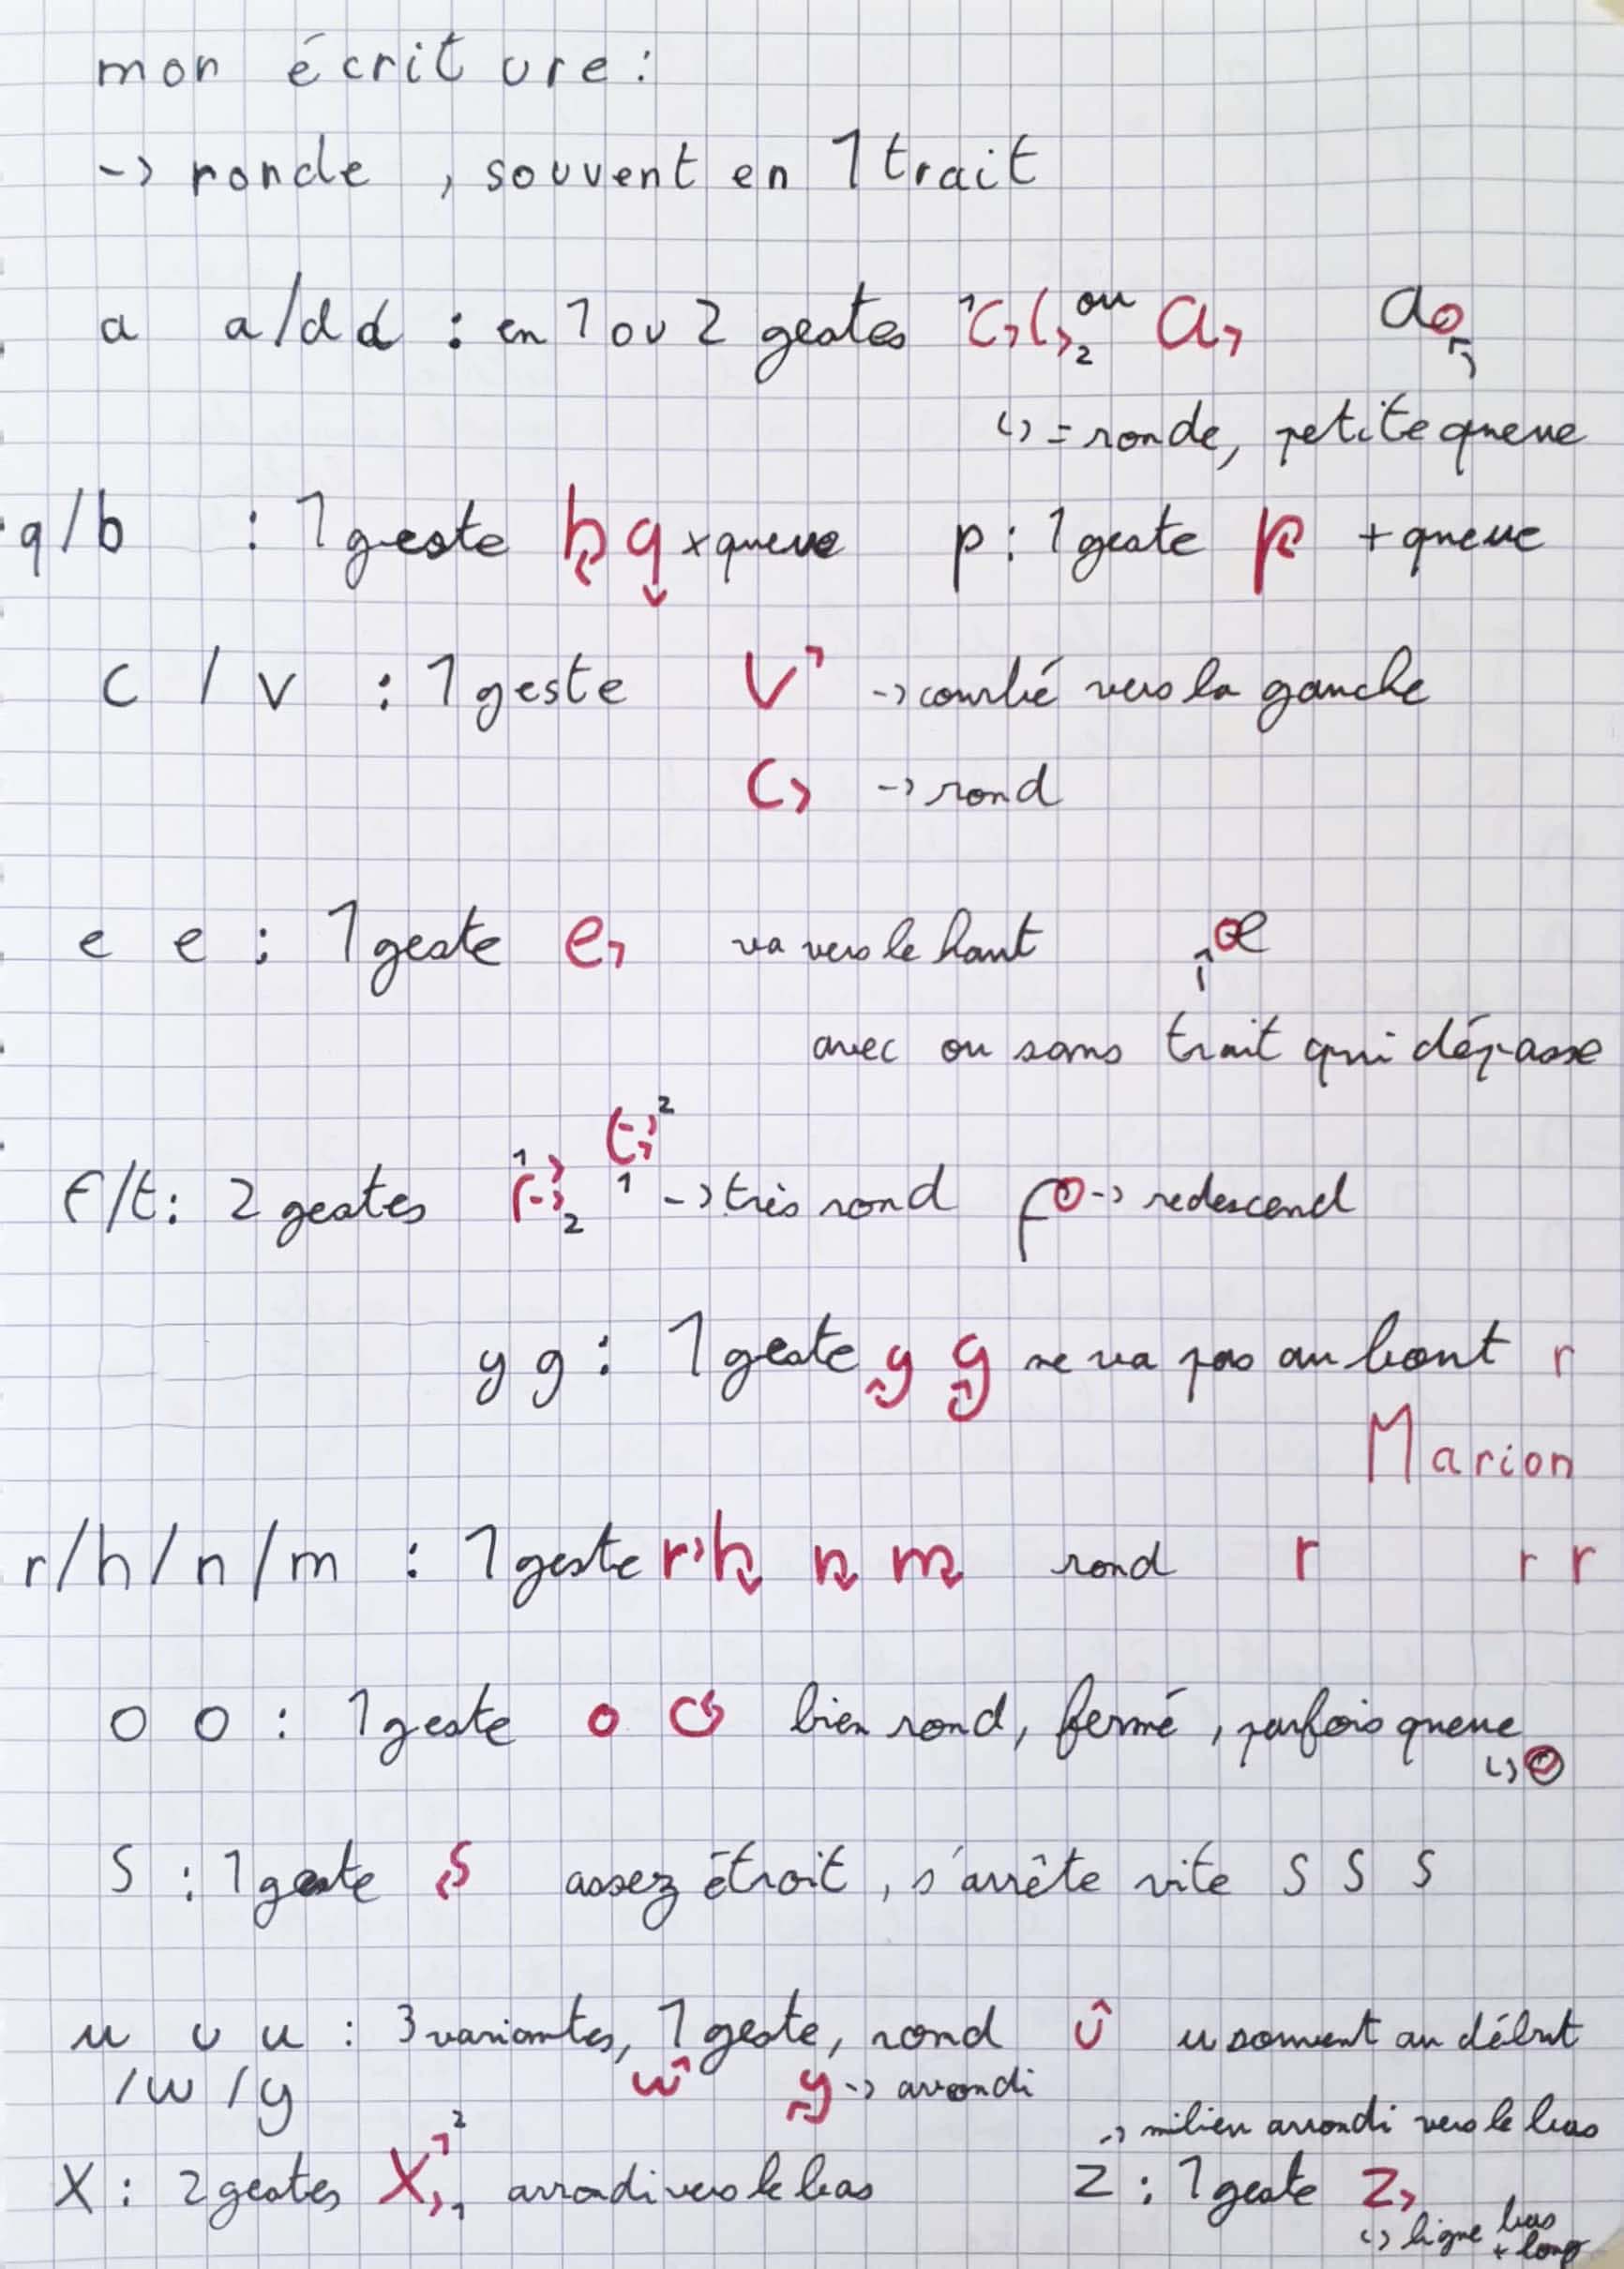 mon écriture :
-> ronde , souvent en 1 trait
a a/d d : en 1 ou 2 gestes 1 c l 2 ou a ao
↳ = ronde, petite queue
q/b : 1 geste b q x queue p : 1 geste p + queue
c / v : 1 geste v -> courbé vers la gauche
c -> rond
e e : 1 geste e va vers le haut oe
avec ou sans trait qui dépasse
f/t : 2 gestes 1 f 2 t 1 2 -> très rond f -> redescend
y g : 1 geste y g ne va pas au bout r
Marion
r/h/n/m : 1 geste r h n m rond r r r
o o : 1 geste o o bien rond, fermé, parfois queue
↳ o
s : 1 geste s assez étroit, s'arrête vite s s s
u u u : 3 variantes, 1 geste, rond u u souvent au début
/w /y w y -> arrondi
-> milieu arrondi vers le bas
x : 2 gestes x 1 2 arrondi vers le bas z : 1 geste z
↳ ligne bas + long